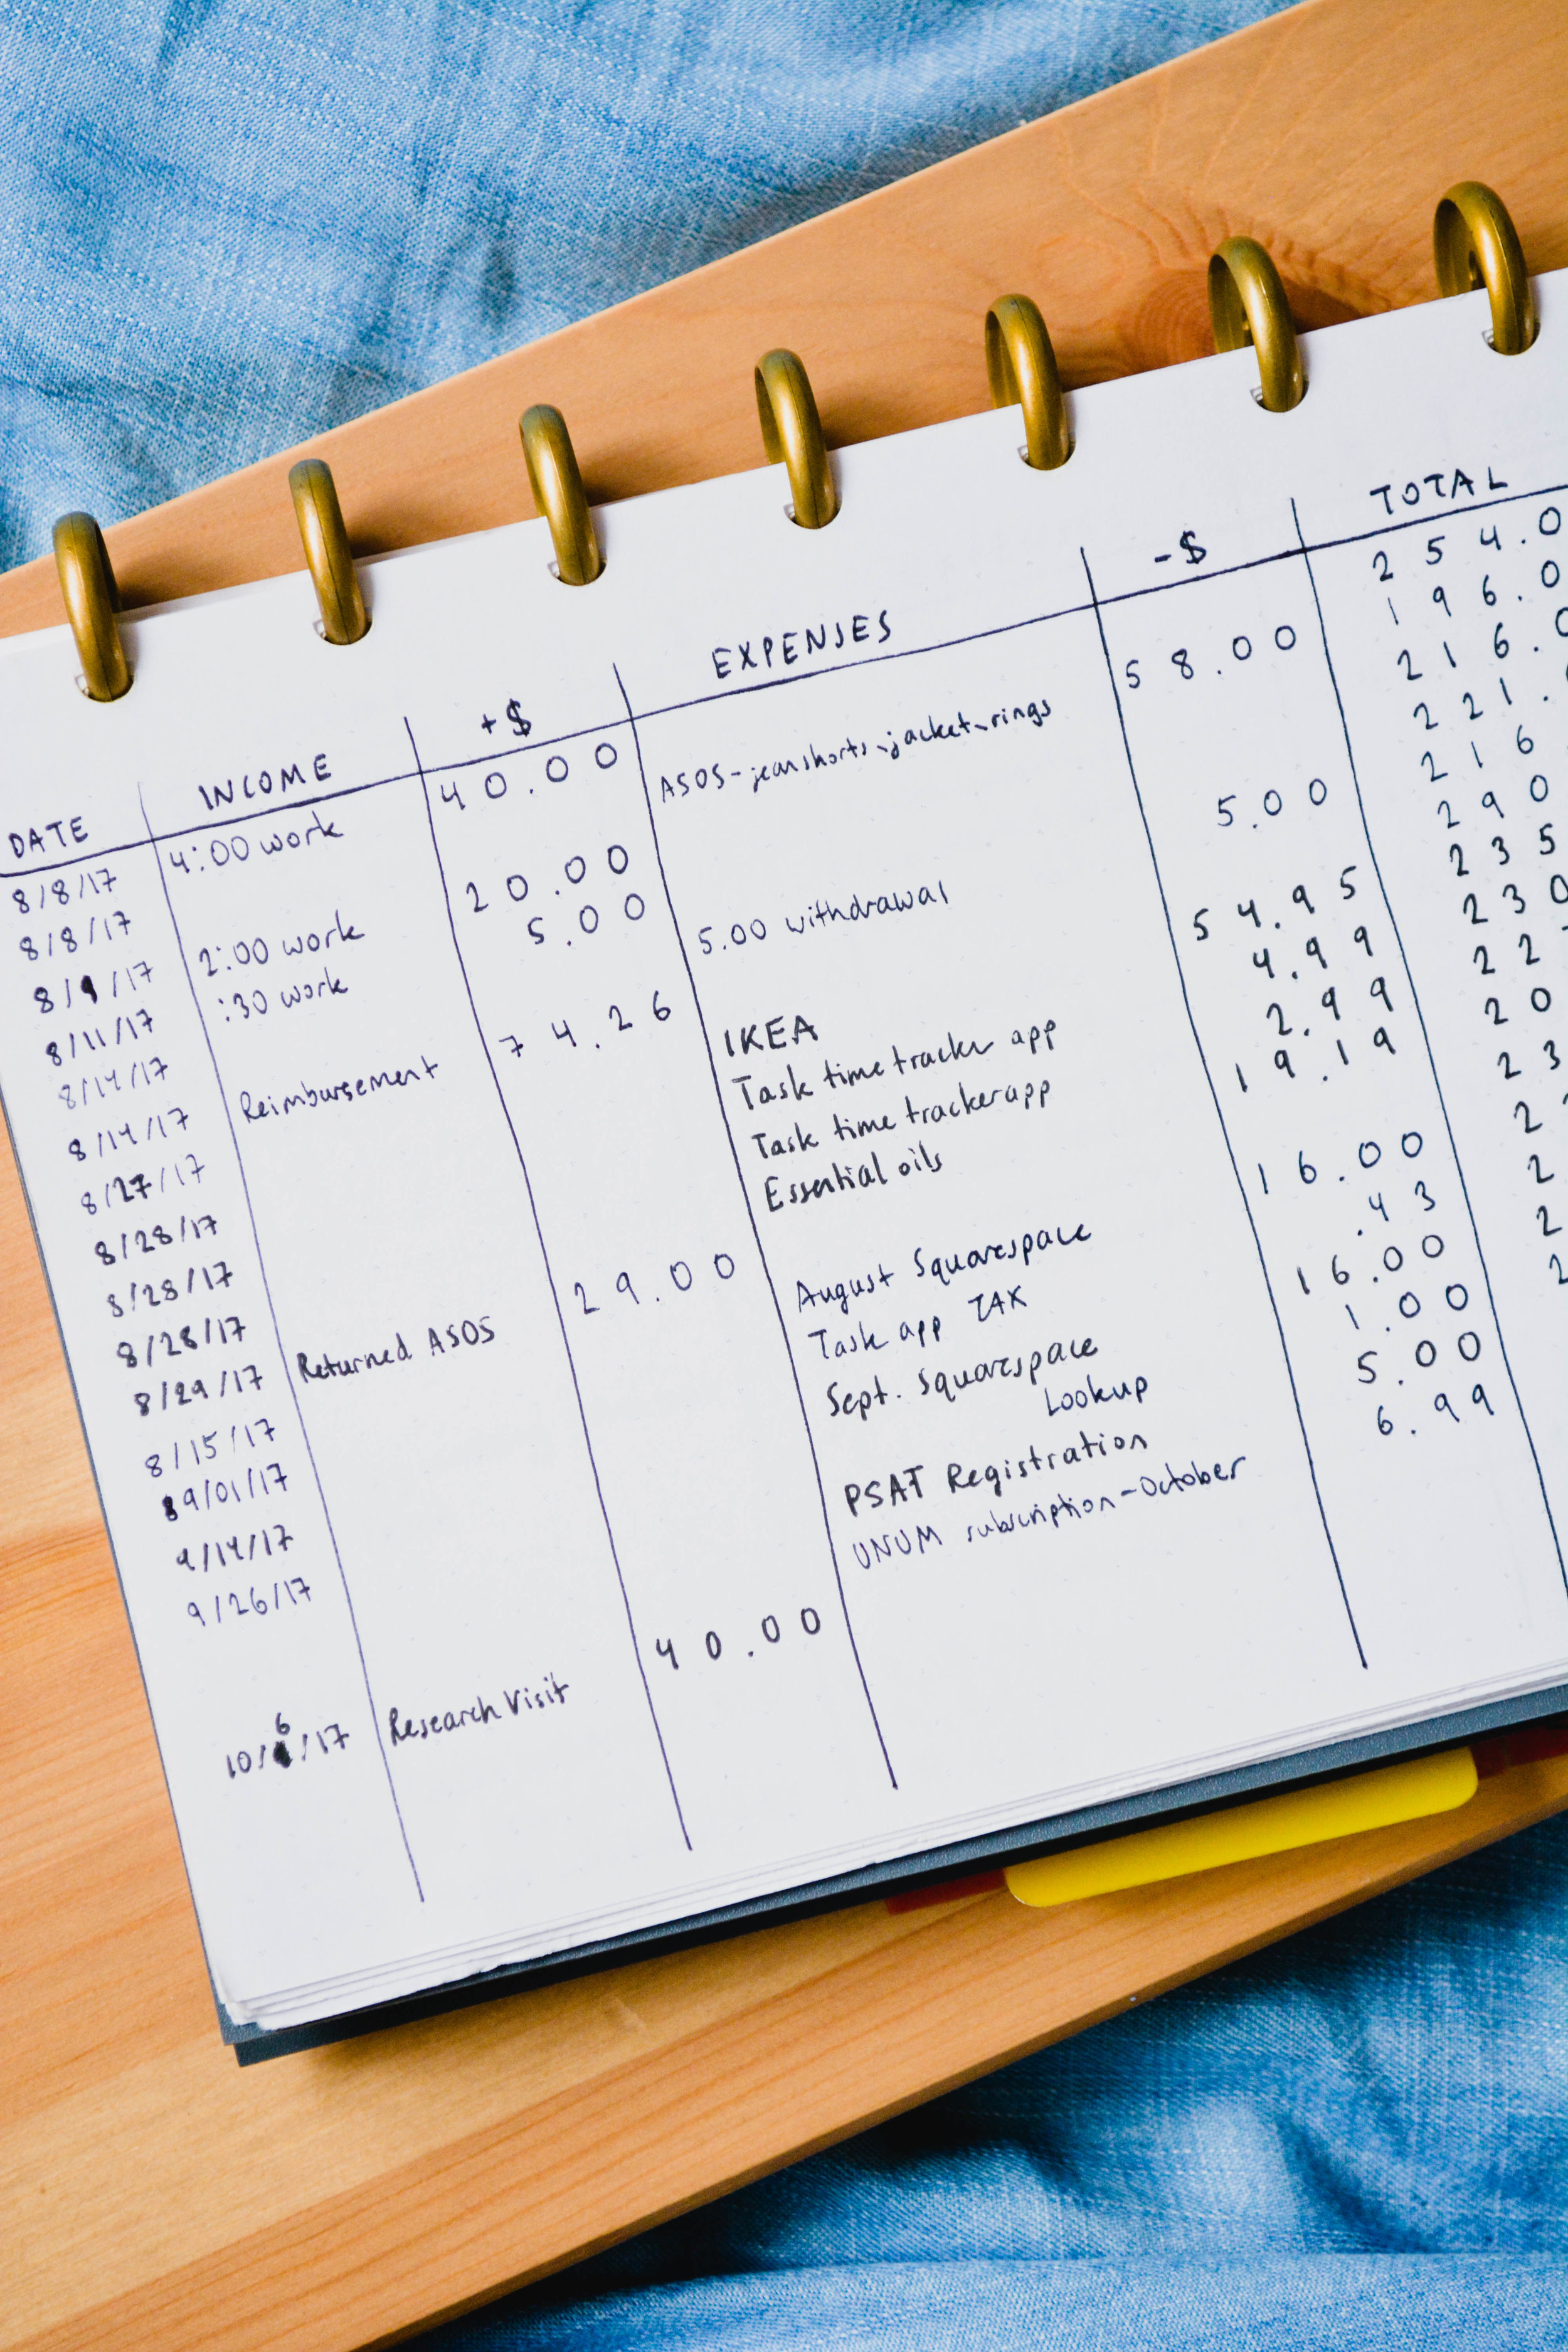 DATE INCOME +$ EXPENSES -$ TOTAL
8/8/17 4:00 work 40.00 254.0
8/8/17 ASOS - jean shorts, jacket, rings 58.00 196.0
8/9/17 2:00 work 20.00 216.0
8/11/17 :30 work 5.00 221.
8/14/17 5.00 withdrawal 5.00 216
8/14/17 Reimbursement 74.26 290
8/27/17 IKEA 54.95 235
8/28/17 Task time tracker app 4.99 230
8/28/17 Task time tracker app 2.99 22
8/28/17 Essential oils 19.19 20
8/29/17 Returned ASOS 29.00 23
8/15/17 August Squarespace 16.00 2
9/01/17 Task app TAX .43 2
9/14/17 Sept. Squarespace 16.00 2
9/26/17 Lookup 1.00 2
PSAT Registration 5.00
UNUM subscription - October 6.99
10/6/17 Research Visit 40.00